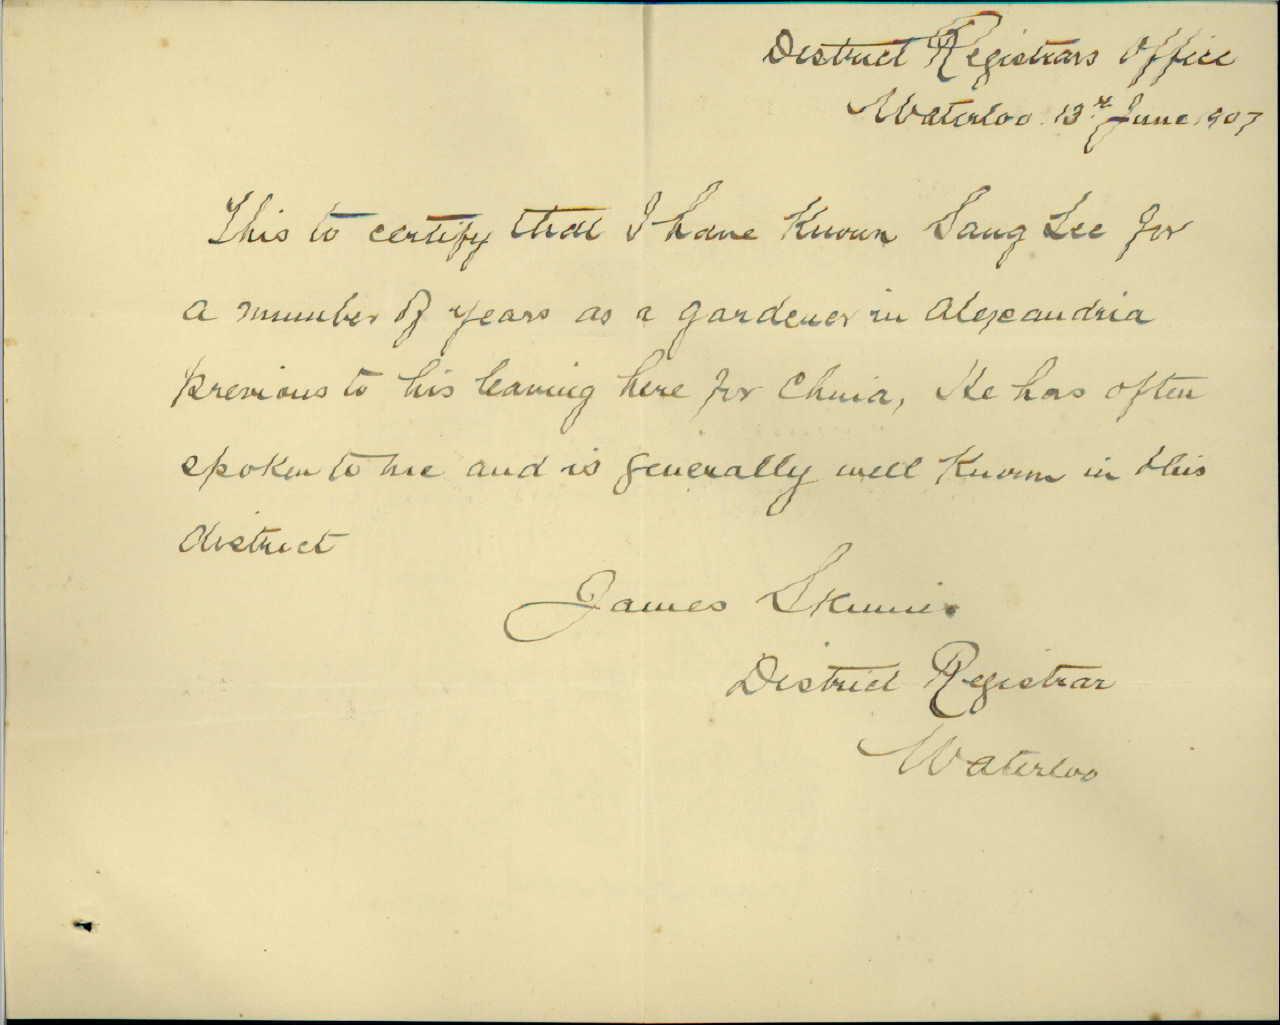 District Registrars Office
Waterloo 13th June 1907
This to certify that I have Known Sang Lee for
a number of years as a gardener in Alexandria
previous to his leaving here for China, He has often
spoken to me and is generally well Known in this
district
James Skinner
District Registrar
Waterloo